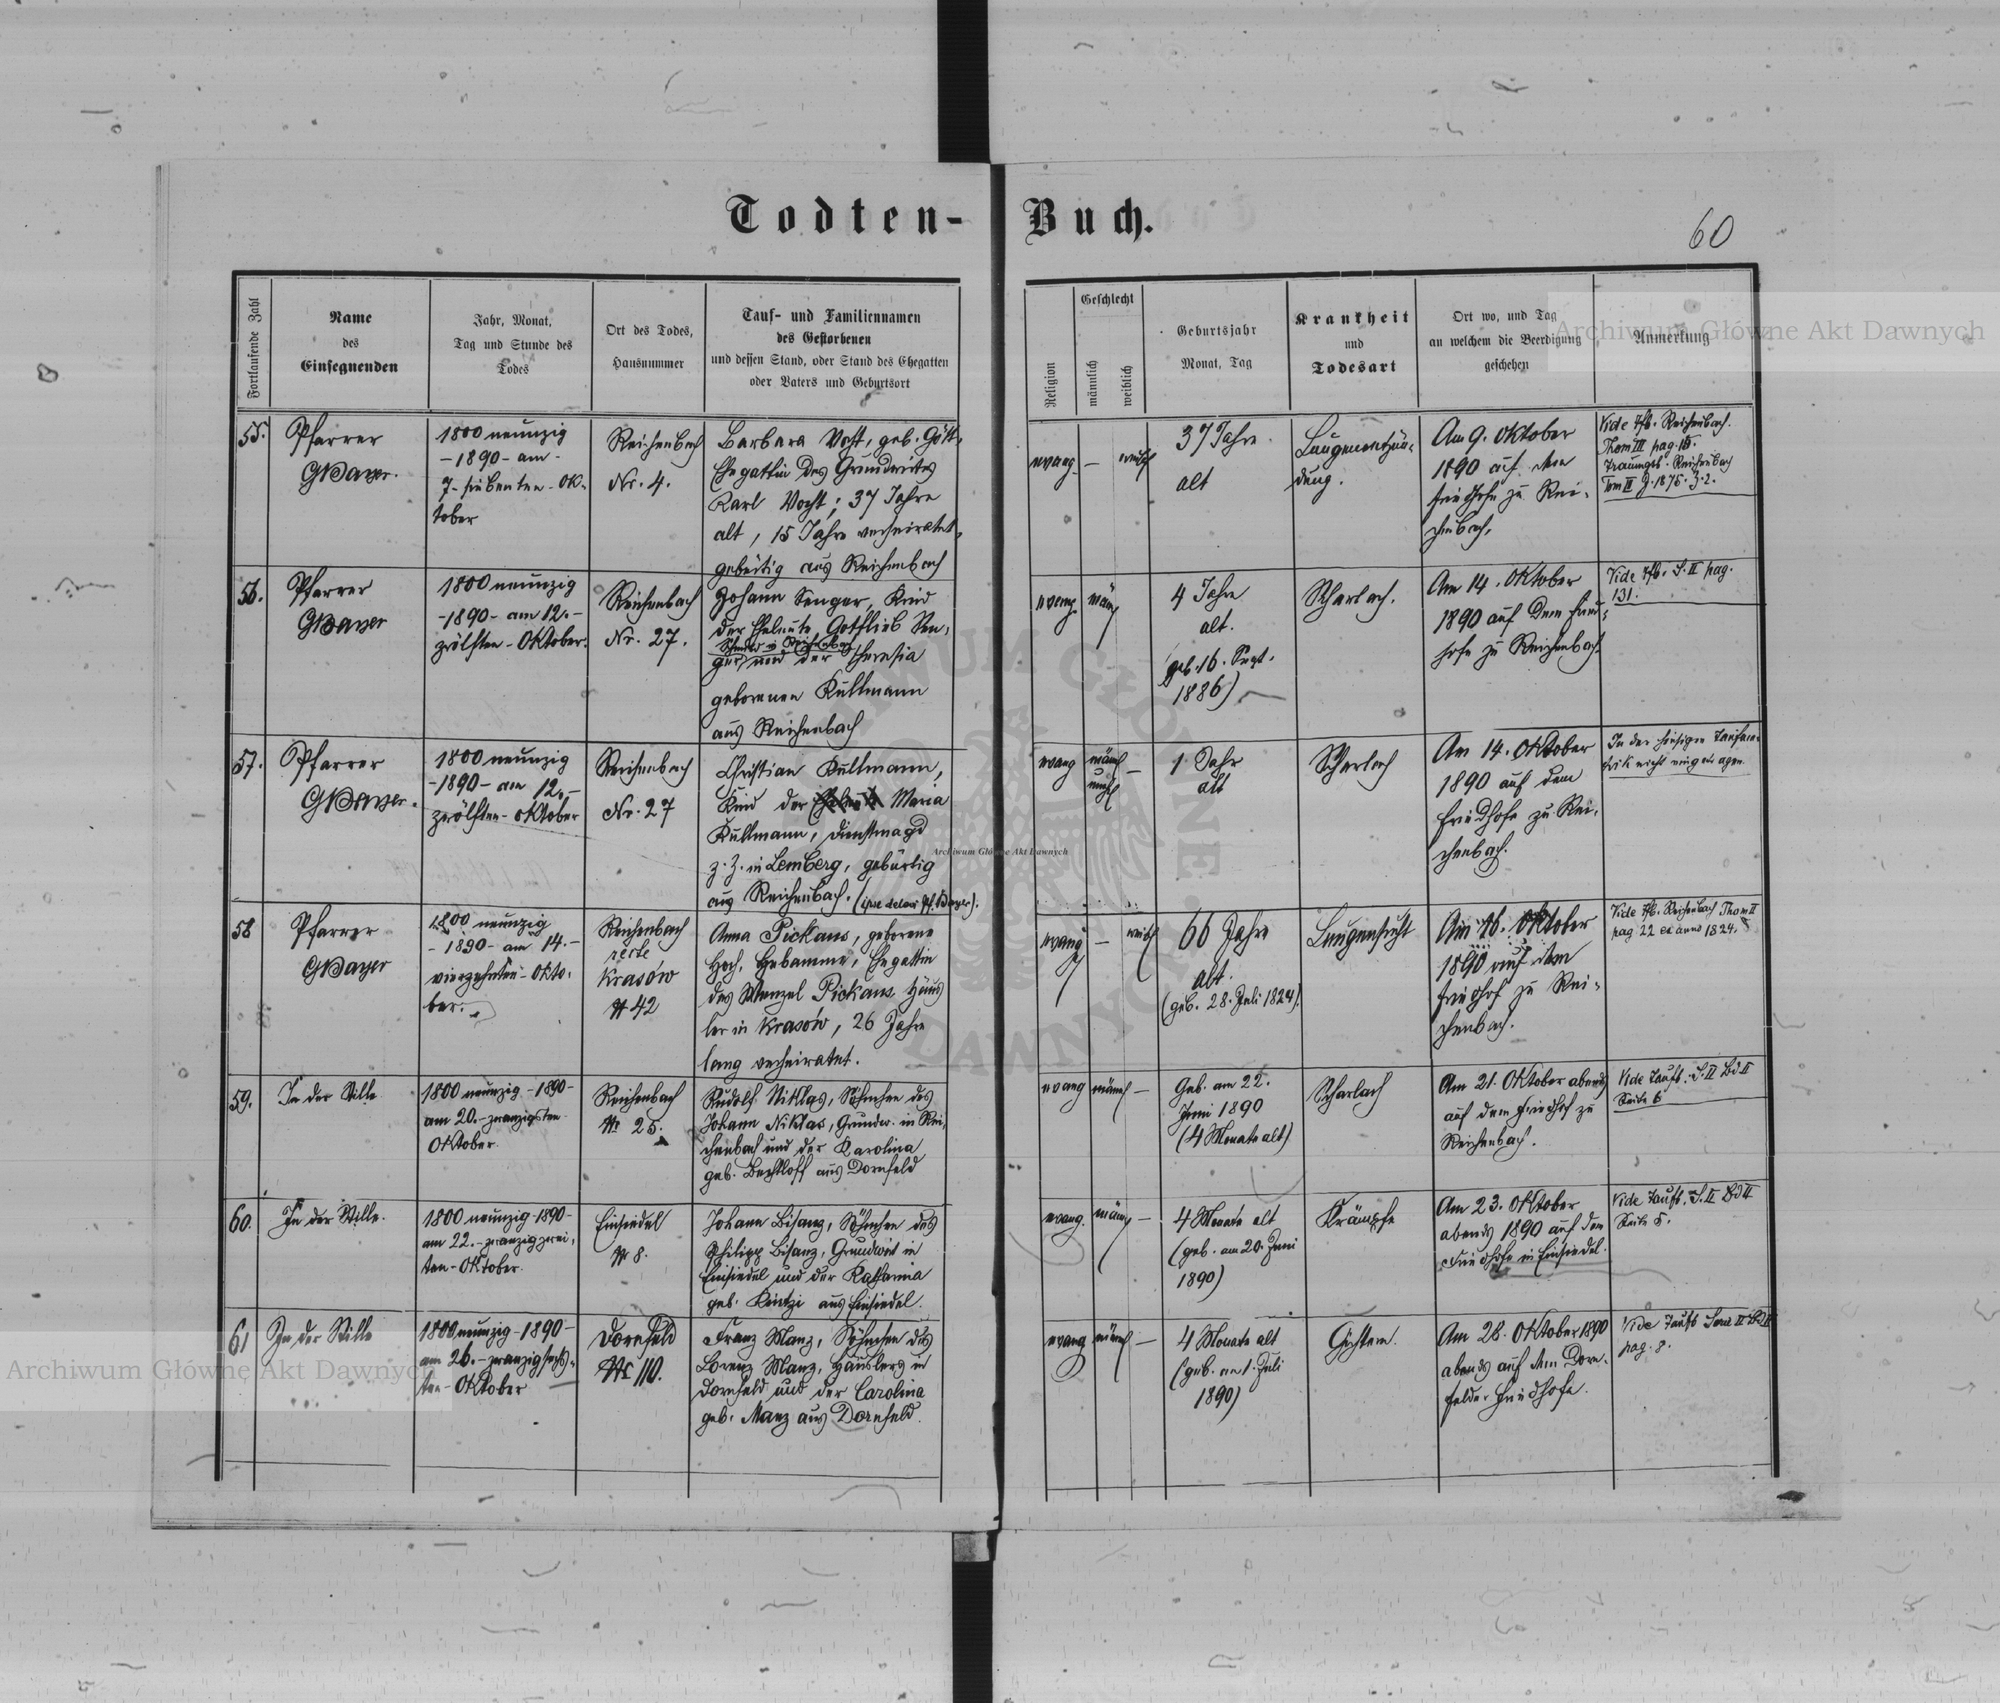 Todten-Buch.
60
Fortlaufende Zahl
Name
des
Einsegnenden
Jahr, Monat,
Tag und Stunde des
Todes
Ort des Todes,
Hausnummer
Tauf- und Familiennamen
des Gestorbenen
und dessen Stand, oder Stand des Ehegatten
oder Vaters und Geburtsort
Religion
Geschlecht
männlich
weiblich
Geburtsjahr
Monat, Tag
Krankheit
und
Todesart
Ort wo, und Tag
an welchem die Beerdigung
geschehen
Anmerkung
Archiwum Główne Akt Dawnych
55.
Pfarrer
GBayer.
1800 neunzig
-1890- am-
7- siebenten- Ok-
tober
Reichenbach
Nr. 4.
Barbara Vogt, geb.
Ehegattin des Grundwirtes
Karl Vogt; 37 Jahre
alt, 15 Jahre verheiratet,
gebürtig aus Reichenbach
evang.
—
weibl
37 Jahre
alt
Lungenentzün-
dung.
Am 9. Oktober
1890 auf dem
Friedhofe zu Rei-
chenbach.
Vide Tfb. Reichenbach.
Thom III pag.
Trauungsb. Reichenbach
Tom II J. 1875. Z. 2.
56.
Pfarrer
GBayer
1800 neunzig
-1890- am 12.-
zwölften- Oktober.
Reichenbach
Nr. 27.
Johann Senger, Kind
der Eheleute Gottlieb Sen-
Schmied in Reichenbach
ger und der Theresia
geborenen Kullmann
aus Reichenbach
evang
män
4 Jahre
alt.
(geb. 16. Sept.
1886)
Scharlach.
Am 14. Oktober
1890 auf dem Fried-
hofe zu Reichenbach.
Vide Tfb. S. II pag.
131.
57.
Pfarrer
GBayer.
1800 neunzig
-1890- am 12.-
zwölften- Oktober
Reichenbach
Nr. 27
Christian Kullmann,
Kind der Maria
Kullmann, Dienstmagd
z. Z. in Lemberg, gebürtig
aus Reichenbach.
evang
männl
—
1 Jahr
alt
Scharlach
Am 14. Oktober
1890 auf dem
Friedhofe zu Rei-
chenbach.
In der hiesigen Taufma-
trik nicht eingetragen.
58
Pfarrer
GBayer
1800 neunzig
-1890- am 14.-
vierzehnten- Okto-
ber.
Reichenbach
recte
Krasów
№ 42
Anna Pickaus, geborene
Hoch, Hebamme, Ehegattin
des Wenzel Pickaus Häus
ler in Krasów, 26 Jahre
lang verheiratet.
evang
—
weibl
66 Jahre
alt.
(geb. 28. Juli 1824).
Lungensucht
Am 16. Oktober
1890 auf dem
Friedhof zu Rei-
chenbach.
Vide Tfb. Reichenbach Thom II
pag 22 ex anno 1824.
59.
In der Stille
1800 neunzig -1890-
am 20.- zwanzigsten
Oktober
Reichenbach
№ 25.
Rudolf Niklas, Söhnchen des
Johann Niklas, Grundw. in Rei-
chenbach und der Karolina
geb. Bechtloff aus Dornfeld
evang
männl
—
Geb. am 22.
Juni 1890
(4 Monate alt)
Scharlach
Am 21. Oktober abends
auf dem Friedhof zu
Reichenbach.
Vide Taufb. S. II Bd II
Seite 6
60.
In der Stille.
1800 neunzig -1890-
am 22.- zwanzigzwei-
ten- Oktober.
Einsiedel
№ 8.
Johann Bisanz, Söhnchen des
Philipp Bisanz, Grundwirt in
Einsiedel und der Katharina
geb. Kintzi aus Einsiedel.
evang.
männ
—
4 Monate alt
(geb. am 20. Juni
1890)
Krämpfe
Am 23. Oktober
abends 1890 auf dem
Friedhofe in Einsiedel.
Vide Taufb. S. II Bd II
Seite 5.
61
In der Stille
1800 neunzig -1890-
am 26.- zwanzigsechs-
ten- Oktober
Dornfeld
№ 110.
Franz Manz, Söhnchen des
Lorenz Manz, Häuslers in
Dornfeld und der Carolina
geb. Manz aus Dornfeld.
evang
männl
—
4 Monate alt
(geb. am 1. Juli
1890)
Gichtern.
Am 28. Oktober 1890
abends auf dem Dorn-
felder Friedhofe.
Vide Taufb Serie II Bd II
pag. 8.
Archiwum Główne Akt Dawnych
Archiwum Główne Akt Dawnych